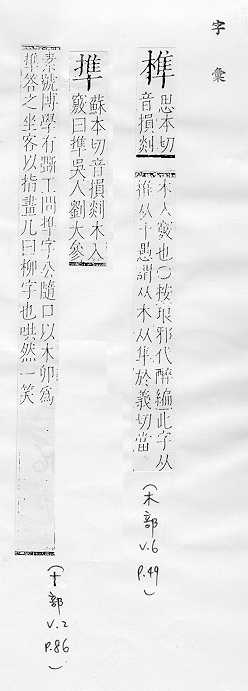 字彙
榫
思本切
音損剡
木入竅也○按琅邪代醉編此字从
从十愚謂从木从隼於義切當
(木部 V.6 P.49)
蘇本切音損剡木入
竅曰 吳人劉大參
素號博學有斵工問 字公隨口以木卯為
答之坐客以指畫几曰柳字也哄然一笑
(十部 V.2 P.86)